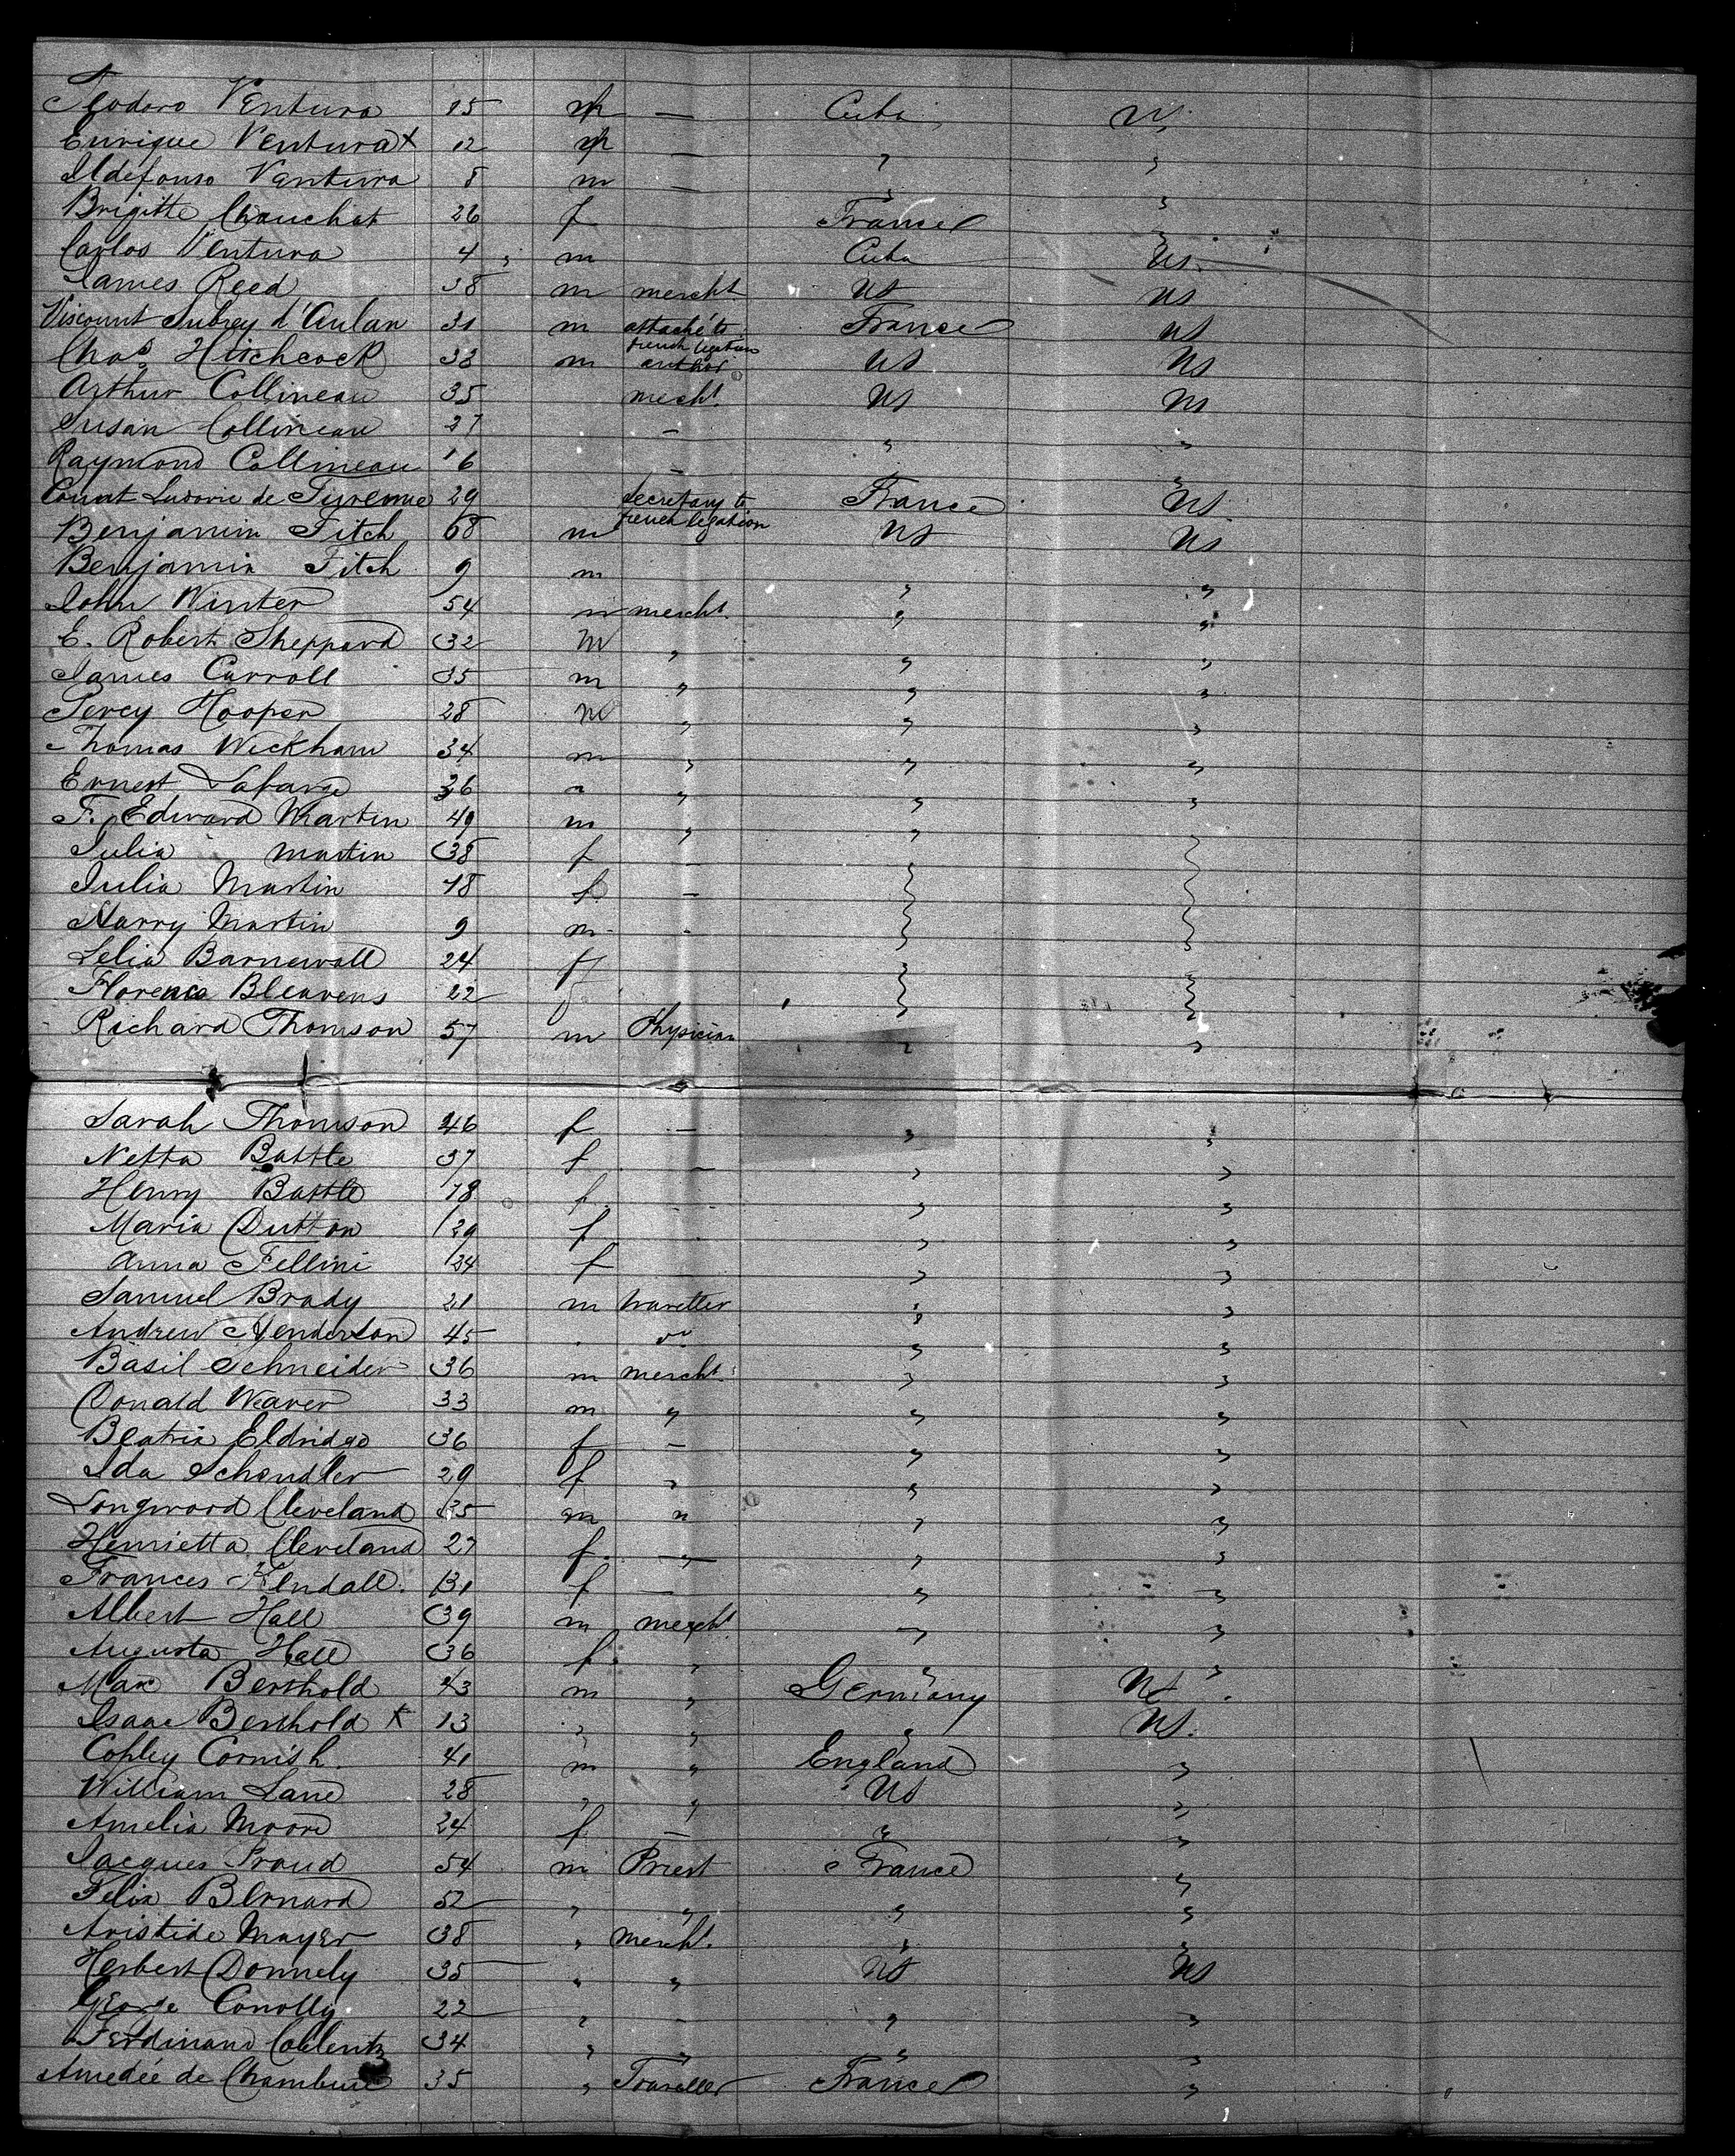 Teodoro Ventura 15 m — Cuba US
Enrique Ventura x 12 m — " "
Ildefonso Ventura 8 m — " "
Brigitte Chauchat 26 f France "
Carlos Ventura 4 m Cuba US.
James Reed 38 m mercht US US
Viscount Aubrey d'Aulan 31 m attaché to France US
french legation
Chas Hitchcock 33 m author US US
Arthur Collineau 35 mercht. US US
Susan Collineau 27 — " "
Raymond Collineau 6 — "
Count Ludovic de Turenne 29 secretary to France US
french legation
Benjamin Fitch 68 m US US
Benjamin Fitch 9 m " "
John Winter 54 m mercht. " "
E. Robert Sheppard 32 m " " "
James Carroll 35 m " " "
Percy Hooper 28 m " " "
Thomas Wickham 34 m " " "
Ernest Lafarge 36 " " " "
F. Edward Martin 49 m " " "
Julia Martin 38 f -
Julia Martin 18 f. —
Harry Martin 9 m. -
Lelia Barnewall 24 f
Florence Bleavens 22 f
Richard Thomson 57 m Physician " "
Sarah Thomson 46 f — " "
Netta Battle 37 f — " "
Henry Battle 18 f. " "
Maria Dutton 29 f " "
Anna Fellini 24 f " "
Samuel Brady 21 m traveller " "
Andrew Henderson 45 " " "
Basil Schneider 36 m mercht. " "
Donald Weaver 33 m " " "
Beatrix Eldridge 36 f — " "
Ida Schendler 29 f " " "
Longwood Cleveland 35 m " " "
Henrietta Cleveland 27 f. — " "
Frances Kendall. 31 f — " "
Albert Hall 39 m mercht. " "
Augusta Hall 36 f. " " "
Max Berthold 43 m " Germany US.
Isaac Berthold x 13 " " " US.
Copley Cornish. 41 m " England "
William Lane 28 " " US "
Amelia Moore 24 f. — " "
Jacques Praud 54 m Priest France "
Felix Bernard 52 " " " "
Aristide Mayer 38 " mercht. " "
Herbert Donnely 35 " " US US
George Conolly 22 " - " "
Ferdinand Coblentz 34 " " " "
Amedée de Chambure 35 " Traveller France "